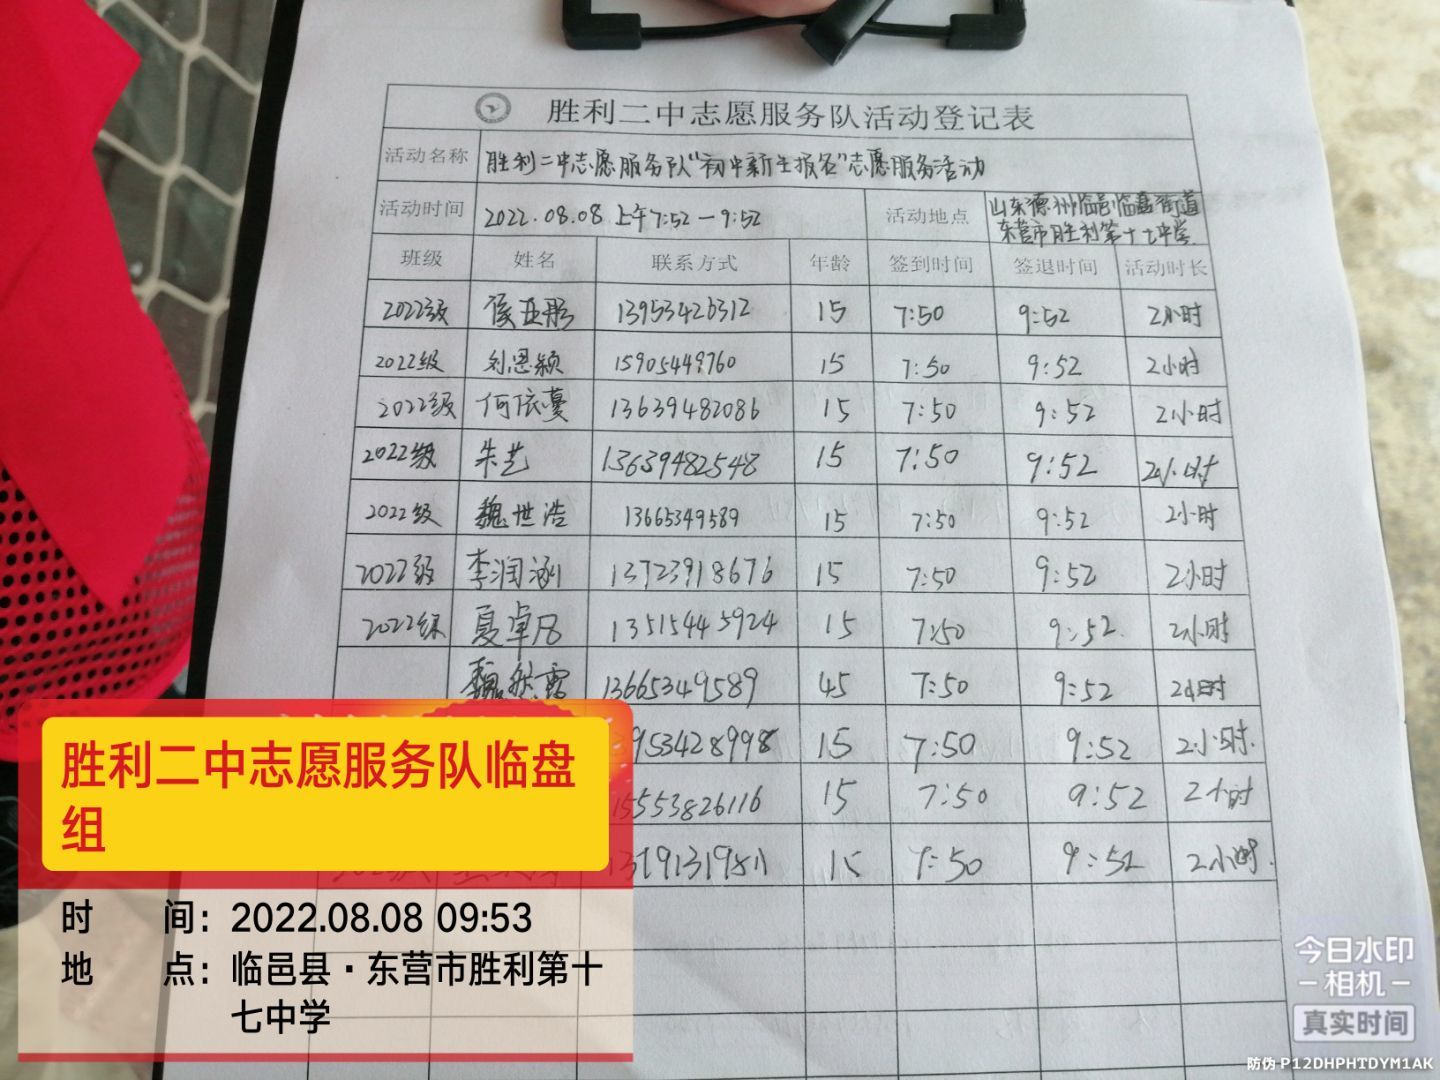 胜利二中志愿服务队活动登记表
活动名称 胜利二中志愿服务队“初中新生报名”志愿服务活动
活动时间 2022.08.08 上午7:52—9:52 活动地点 山东德州临邑临盘街道
东营市胜利第十七中学
班级 姓名 联系方式 年龄 签到时间 签退时间 活动时长
2022级 侯亚彤 13953426312 15 7:50 9:52 2小时
2022级 刘恩颖 15905449760 15 7:50 9:52 2小时
2022级 何依蔓 13639482086 15 7:50 9:52 2小时
2022级 朱艺 13639482548 15 7:50 9:52 2小时
2022级 魏世浩 13665349589 15 7:50 9:52 2小时
2022级 李润涵 13723918676 15 7:50 9:52 2小时
2022级 夏卓凡 13515445924 15 7:50 9:52 2小时
魏 13665349589 45 7:50 9:52 2小时
953428998 15 7:50 9:52 2小时
15553826116 15 7:50 9:52 2小时
15 7:50 9:52 2小时
胜利二中志愿服务队临盘
组
时 间：2022.08.08 09:53
地 点：临邑县·东营市胜利第十
七中学
今日水印
相机
真实时间
防伪 P12DHPHTDYM1AK